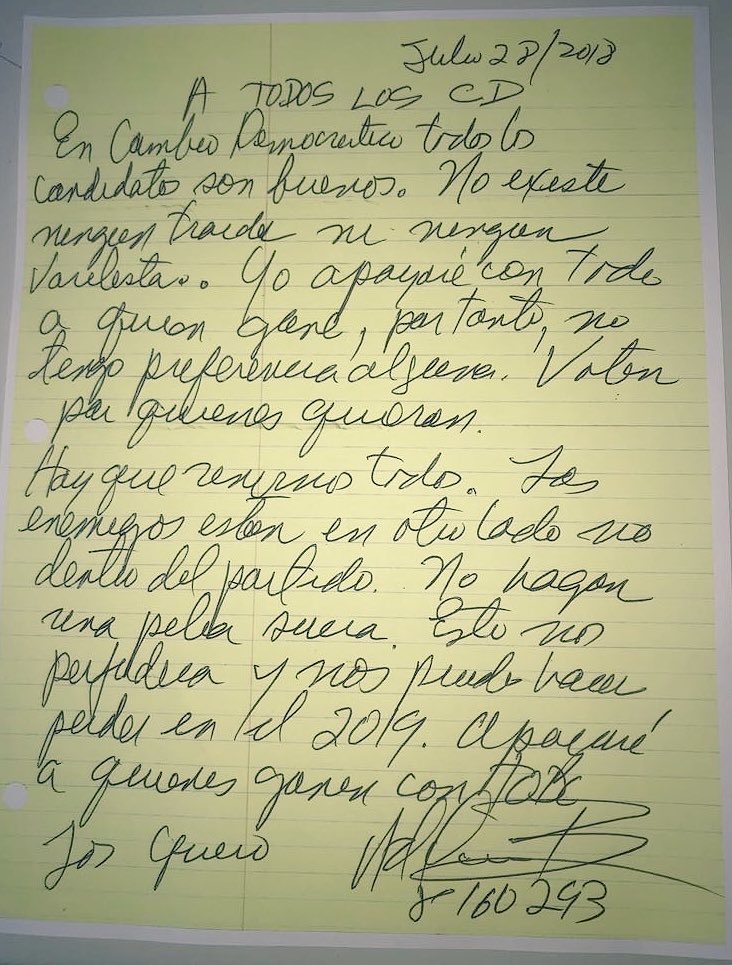 Julio 28/2018
A TODOS LOS CD
En Cambio Democratico todos los
candidatos son buenos. No existe
ningun traidor ni ningun
Varelista. Yo apoyaré con todo
a quien gane, por tanto, no
tengo preferencia alguna. Voten
por quienes quieran.
Hay que reunirnos todos. Los
enemigos estan en otro lado no
dentro del partido. No hagan
una pelea sucia. Esto nos
perjudica y nos puede hacer
perder en el 2019. Apoyaré
a quienes ganen con TODO
Los Quiero
8 160 293